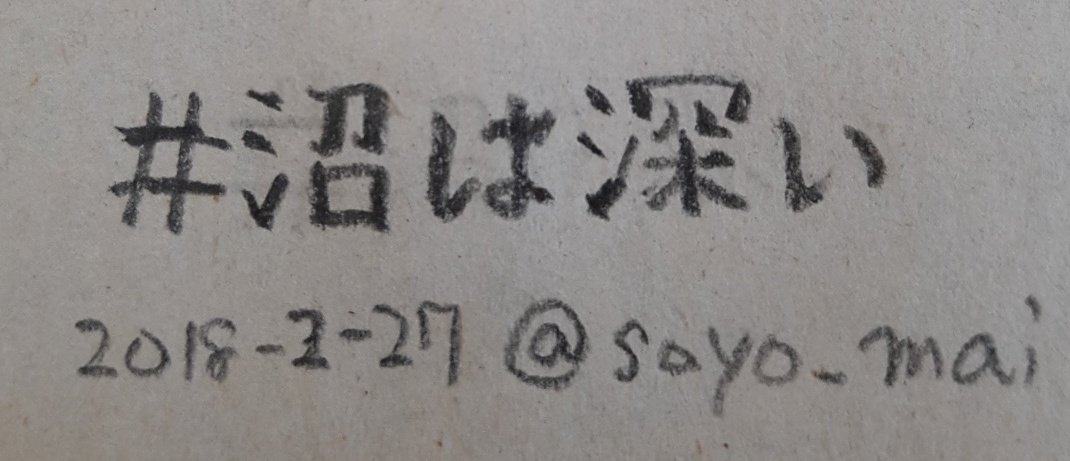 #沼は深い
2018-3-27 @sayo_mai